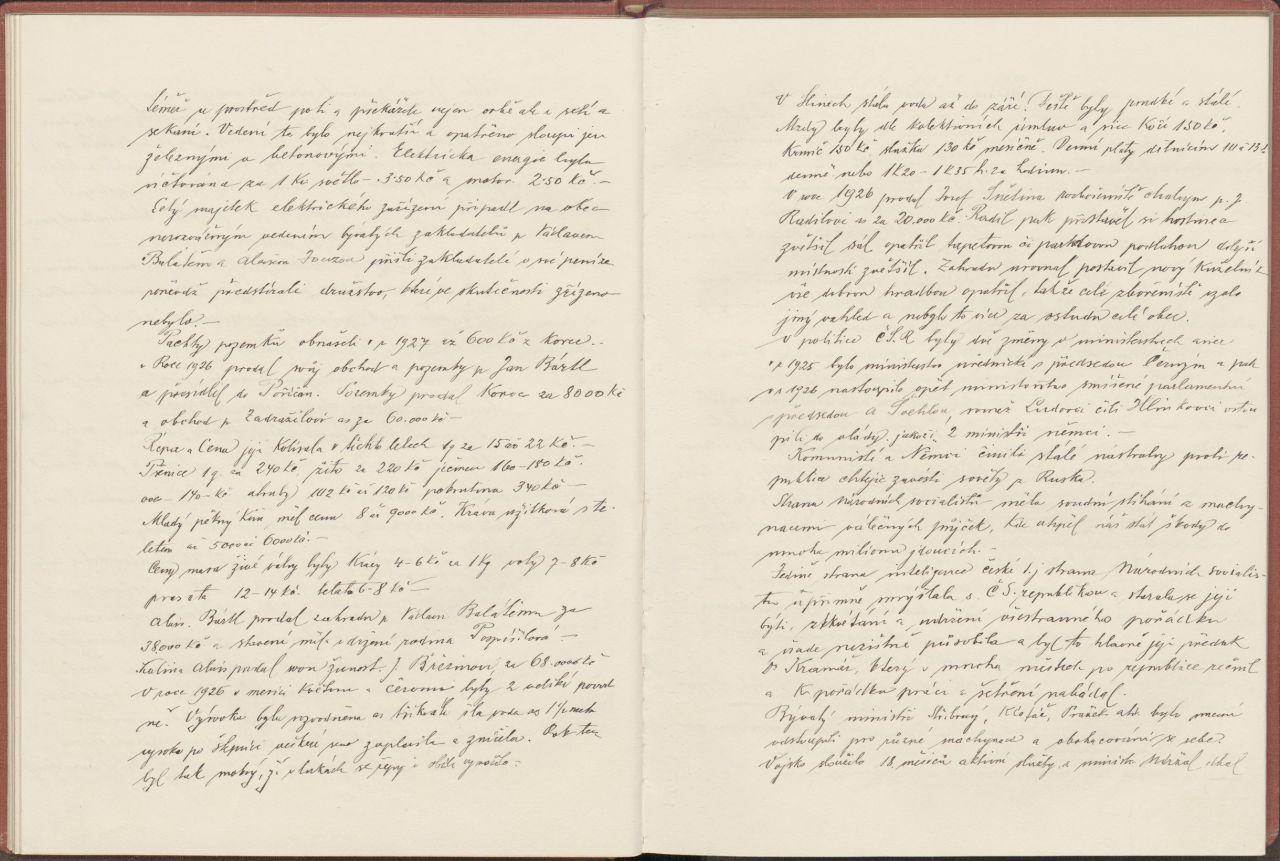 téměř u prostřed polí a překážela nejen orbě ale u setí a
sekání. Vedení to bylo nejkratší a opatřeno sloupy jen
železnými a betonovými. Elektrická energie byla
účtována za 1 Kw světlo 3·50 Kč a motor. 2·50 Kč.–
Celý majetek elektrického zařízení připadl na obec
vedením bývalých zakladatelů p. Václavem
Balášem a Aloisem přišli zakladatelé o své peníze
poněvdž předstírali družstvo, které ve skutečnosti zřízeno
nebylo.–
Pachty pozemků obnášeli v r. 1927 až 600 Kč z korce.–
v Roce 1926 prodal svůj obchod a pozemky p. Jan Bártl
a přesídlil do Poříčan. Pozemky prodal Korec za 8000 Kč
a obchod p. Zadražilovi as za 60.000 Kč–
Řepa a Cena její kolísala v těchto letech 1q za 15 až 22 Kč.–
Pšenice 1 q. za 240 Kč, žito za 220 Kč ječmen 160–180 Kč.
oves – 140– Kč otruby 102 Kč až 120 Kč pokrutina 340 Kč–
Mladý pěkný kůň měl cenu 8 až 9000 Kč. Kráva užitková s te-
letem až 5000 až 6000 Kč.–
Ceny masa živé váhy byly Krávy 4–6 Kč za 1 Kg voly 7–8 Kč
prasata 12–14 Kč. telata 6–8 Kč–
Alois. Bártl prodal zahradu p. Václavu Balášemu za
38000 Kč a stavení měla v držení rodina Pospíšilova–
Kalina Alois prodal svou živnost J. Březinovi za 68.000 Kč
V roce 1926 v měsíci Květnu a Červnu byly 2 veliké povod
ně. Výrovka byla rozvodněna as třikrát šla voda as 1½ metr
vysoko po veškeré seno zaplavila a zničila. Rok ten
byl tak mokrý, že v lukách se řepy i obilí vymočilo.–
V Hlinech stála voda až do září! Deště byly prudké a stálé.
Mzdy byly dle kolektivních úmluv a sice Kočí 150 Kč,
Krmič 150 Kč, služka 130 Kč měsíčně. Denní platy dělnicím 10 a 13 K
denně nebo 1 K 20 – 1 K 35 h. za hodinu.–
V roce 1926 prodal Josef zbořeniště chalupu p. J.
Radilovi as za 20.000 Kč. Radil pak přistavěl si hostinec
zvětšil sál opatřil parketovou podlahou dolejší
místnosti zvětšil. Zahradu urovnal postavil nový Kuželník
vše dobrou hradbou opatřil, takže celé zbořeniště vzalo
jiný vzhled a nebylo to více za ostudu celé obce.
V politice Č.S.R. byly dvě změny v ministerstvech a sice
v r. 1925 bylo ministerstvo úřednické s předsedou Černým a pak
v r. 1926 nastoupilo opět ministerstvo smíšené parlamentní
s předsedou A. Švehlou, v němž Luďováci čili Hlinkovci vstou
pili do vlády jakož i 2 ministři němci.–
Komunisti a Němci činili stálé nástrahy proti re-
publice chtějíc zavésti sověty z Ruska.
Strana Národních socialistů měla soudní stíhání z machy-
nacemi válečných půjček, kde utrpěl náš stát škody do
mnoha milionů jdoucích.–
Jedině strana inteligence české t.j. strana Národních socialis-
tů upřímně myslela s Č.S. republikou a starala se její
bytí, zkvétání a udržení všestranného pořádku
a všade nezištně působila a byl to hlavně její předák
Dr Kramář, který v mnoha městech po republice řečnil
a k pořádku práci a šetření nabádal.
Bývalý ministři Stříbrný, Klofáč, Prášek atd. bylo nuceni
odstoupiti pro různé machynace a obohacování se sebe?
Vojsko sloužilo 18. měsíců aktivní služby, a ministr chtěl